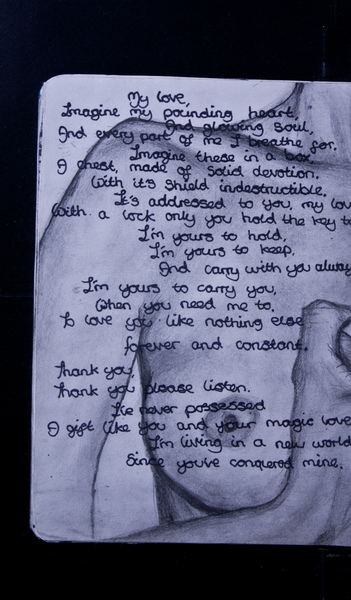 My love,
Imagine my pounding heart,
And glowing soul,
And every part of me I breathe for.
Imagine these in a box,
A chest, made of solid devotion.
With it's shield indestructible,
It's addressed to you, my lov
With a lock only you hold the key to
I'm yours to hold,
I'm yours to keep,
And carry with you alway
I'm yours to carry you,
When you need me to,
To love you like nothing else
forever and constant.
Thank you,
Thank you please listen.
I've never possessed
A gift like you and your magic love
I'm living in a new world
Since you've conquered mine.